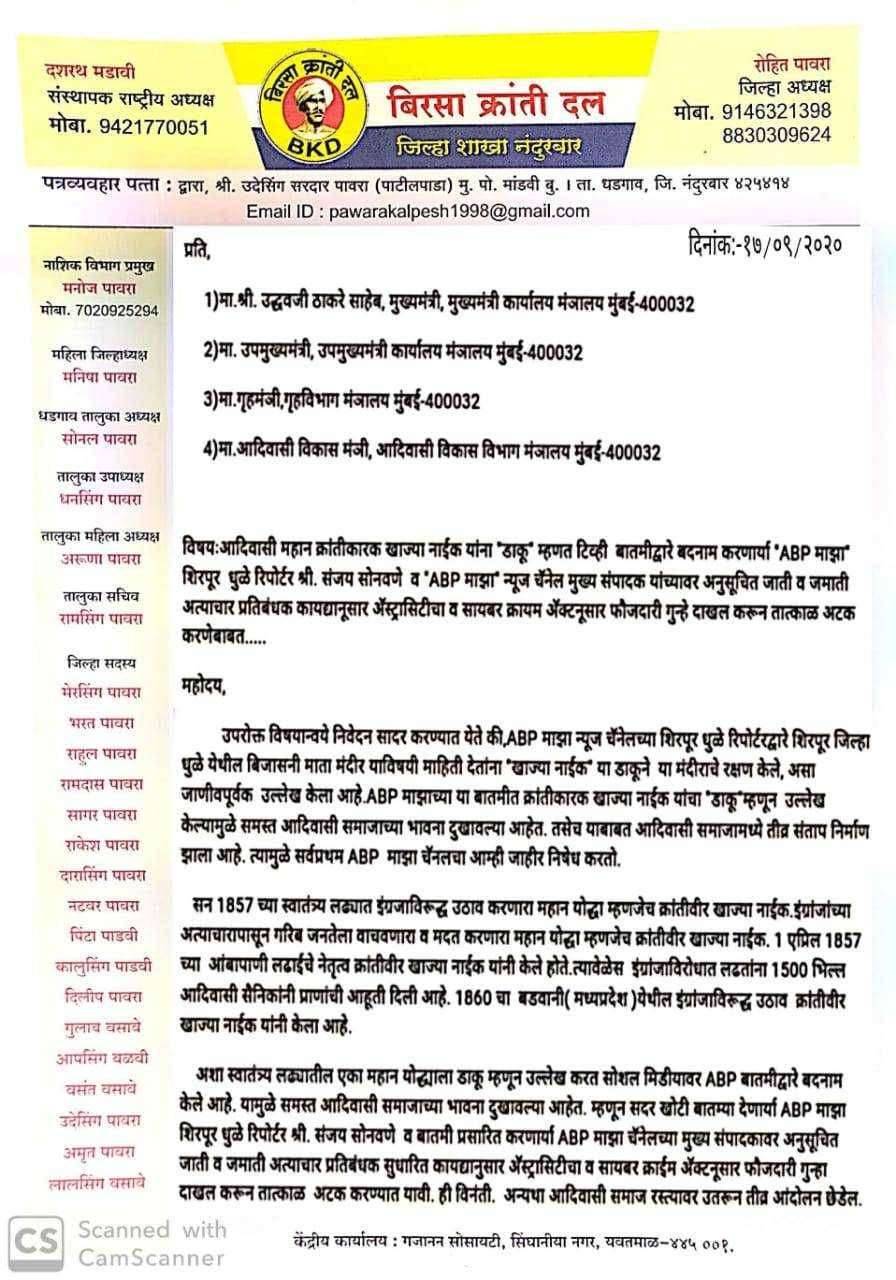 दशरथ मडावी
संस्थापक राष्ट्रीय अध्यक्ष
मोबा. 9421770051
बिरसा क्रांती दल
BKD
बिरसा क्रांती दल
जिल्हा शाखा नंदुरबार
रोहित पावरा
जिल्हा अध्यक्ष
मोबा. 9146321398
8830309624
पत्रव्यवहार पत्ता : द्वारा, श्री. उदेसिंग सरदार पावरा (पाटीलपाडा) मु. पो. मांडवी बु. । ता. धडगाव, जि. नंदुरबार ४२५४१४
Email ID : pawarakalpesh1998@gmail.com
नाशिक विभाग प्रमुख
मनोज पावरा
मोबा. 7020925294
महिला जिल्हाध्यक्ष
मनिषा पावरा
धडगाव तालुका अध्यक्ष
सोनल पावरा
तालुका उपाध्यक्ष
धनसिंग पावरा
तालुका महिला अध्यक्ष
अरूणा पावरा
तालुका सचिव
रामसिंग पावरा
जिल्हा सदस्य
मेरसिंग पावरा
भरत पावरा
राहुल पावरा
रामदास पावरा
सागर पावरा
राकेश पावरा
दारासिंग पावरा
नटवर पावरा
पिंटा पाडवी
कालुसिंग पाडवी
दिलीप पावरा
गुलाव वसावे
आपसिंग वळवी
वसंत वसावे
उदेसिंग पावरा
अमृत पावरा
लालसिंग वसावे
दिनांक:-१७/०९/२०२०
प्रति,
1)मा.श्री. उद्धवजी ठाकरे साहेब, मुख्यमंत्री, मुख्यमंत्री कार्यालय मंत्रालय मुंबई-400032
2)मा. उपमुख्यमंत्री, उपमुख्यमंत्री कार्यालय मंत्रालय मुंबई-400032
3)मा.गृहमंत्री,गृहविभाग मंत्रालय मुंबई-400032
4)मा.आदिवासी विकास मंत्री, आदिवासी विकास विभाग मंत्रालय मुंबई-400032
विषय:आदिवासी महान क्रांतीकारक खाज्या नाईक यांना "डाकू" म्हणत टिव्ही बातमीद्वारे बदनाम करणार्या "ABP माझा"
शिरपूर धुळे रिपोर्टर श्री. संजय सोनवणे व "ABP माझा" न्यूज चॅनेल मुख्य संपादक यांच्यावर अनुसूचित जाती व जमाती
अत्याचार प्रतिबंधक कायद्यानुसार अ‍ॅस्ट्रासिटीचा व सायबर क्रायम अ‍ॅक्टनुसार फौजदारी गुन्हे दाखल करून तात्काळ अटक
करणेबाबत.....
महोदय,
उपरोक्त विषयान्वये निवेदन सादर करण्यात येते की,ABP माझा न्यूज चॅनेलच्या शिरपूर धुळे रिपोर्टरद्वारे शिरपूर जिल्हा
धुळे येथील बिजासनी माता मंदीर याविषयी माहिती देतांना "खाज्या नाईक" या डाकूने या मंदीराचे रक्षण केले, असा
जाणीवपूर्वक उल्लेख केला आहे.ABP माझाच्या या बातमीत क्रांतीकारक खाज्या नाईक यांचा "डाकू"म्हणून उल्लेख
केल्यामुळे समस्त आदिवासी समाजाच्या भावना दुखावल्या आहेत. तसेच याबाबत आदिवासी समाजामध्ये तीव्र संताप निर्माण
झाला आहे. त्यामुळे सर्वप्रथम ABP माझा चॅनलचा आम्ही जाहीर निषेध करतो.
सन 1857 च्या स्वातंत्र्य लढ्यात इंग्रजाविरूद्ध उठाव करणारा महान योद्धा म्हणजेच क्रांतीवीर खाज्या नाईक.इंग्रांजांच्या
अत्याचारापासून गरिब जनतेला वाचवणारा व मदत करणारा महान योद्धा म्हणजेच क्रांतीवीर खाज्या नाईक. 1 एप्रिल 1857
च्या आंबापाणी लढाईचे नेतृत्व क्रांतीवीर खाज्या नाईक यांनी केले होते.त्यावेळेस इंग्रांजाविरोधात लढतांना 1500 भिल्ल
आदिवासी सैनिकांनी प्राणांची आहूती दिली आहे. 1860 चा बडवानी( मध्यप्रदेश )येथील इंग्रांजाविरूद्ध उठाव क्रांतीवीर
खाज्या नाईक यांनी केला आहे.
अशा स्वातंत्र्य लढ्यातील एका महान योद्ध्याला डाकू म्हणून उल्लेख करत सोशल मिडीयावर ABP बातमीद्वारे बदनाम
केले आहे. यामुळे समस्त आदिवासी समाजाच्या भावना दुखावल्या आहेत. म्हणून सदर खोटी बातम्या देणार्या ABP माझा
शिरपूर धुळे रिपोर्टर श्री. संजय सोनवणे व बातमी प्रसारित करणार्या ABP माझा चॅनेलच्या मुख्य संपादकावर अनुसूचित
जाती व जमाती अत्याचार प्रतिबंधक सुधारित कायद्यानुसार अ‍ॅस्ट्रासिटीचा व सायबर क्राईम अ‍ॅक्टनूसार फौजदारी गुन्हा
दाखल करून तात्काळ अटक करण्यात यावी. ही विनंती. अन्यथा आदिवासी समाज रस्त्यावर उतरून तीव्र आंदोलन छेडेल.
केंद्रीय कार्यालय : गजानन सोसायटी, सिंघानीया नगर, यवतमाळ-४४५ ००१.
CS
Scanned with
CamScanner